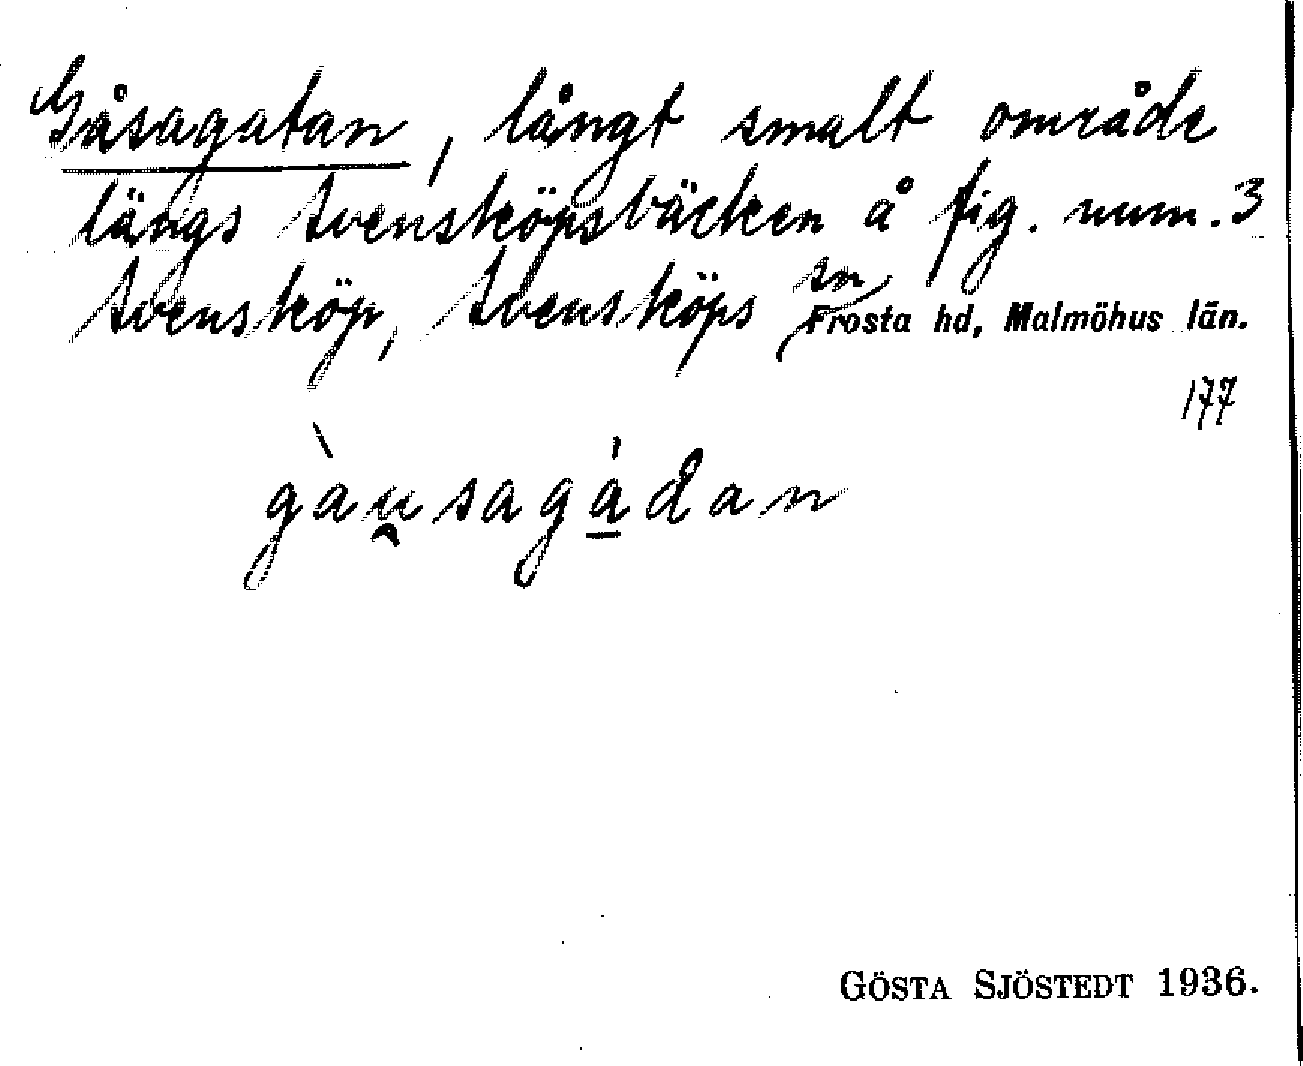 Gåsagatan, långt smalt område
längs Svensköpsbäcken å fig. num. 3
Svensköp, Svensköps sn
Frosta hd, Malmöhus län.
177
gàu̯saga̲̍dan
GÖSTA SJÖSTEDT 1936.